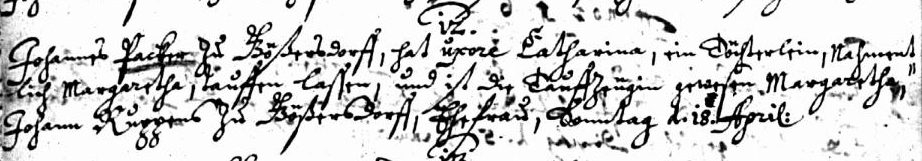 12.
Johannes Packer zu Bößersdorff, hat uxore Catharina, ein Töchterlein, Nahment
lich Margaretha, tauffen lassen, und ist die Tauffzeugin gewesen Margaretha,
Johann Ruppens zu Bößersdorff, Ehefrau, Sonntag d. 18. April: